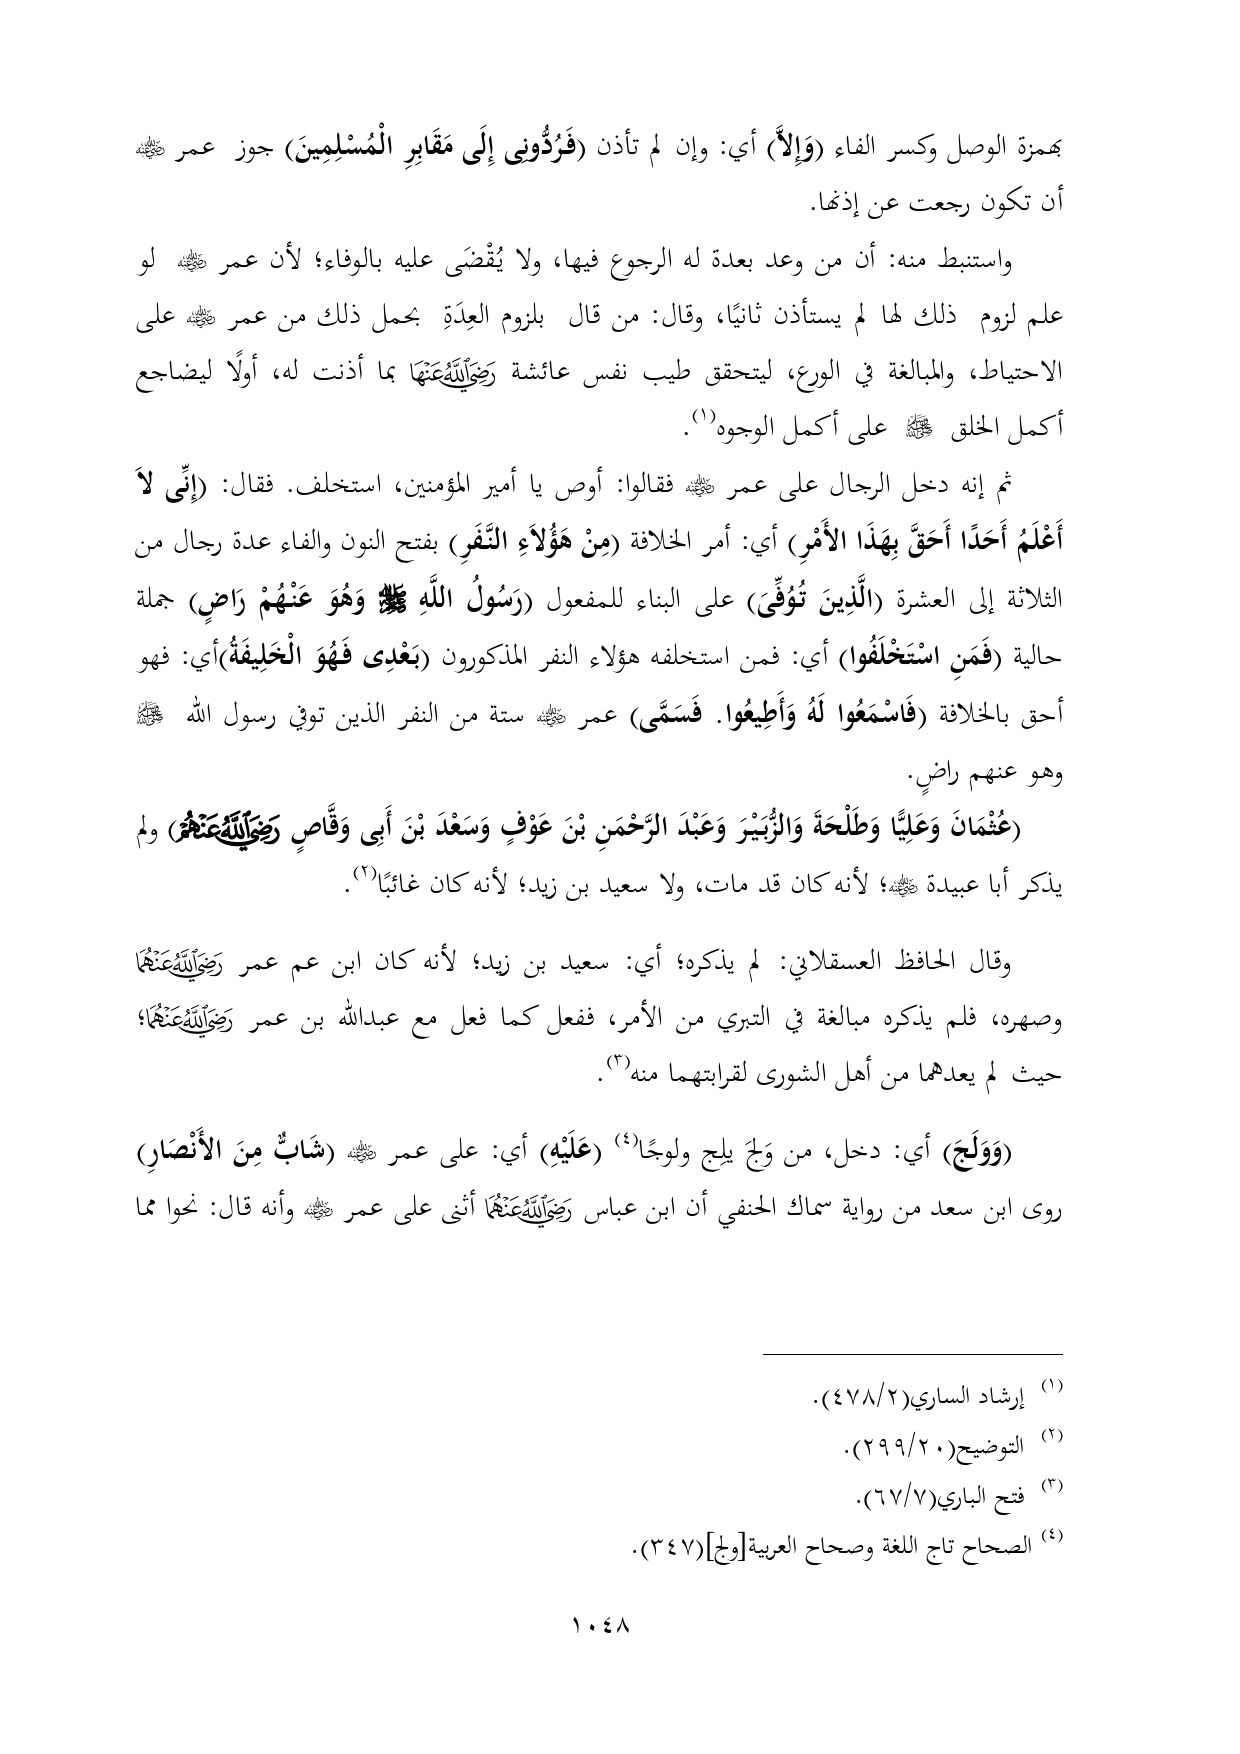 بهمزة الوصل وكسر الفاء (وَإِلاَّ) أي: وإن لم تأذن (فَرُدُّونِى إِلَى مَقَابِرِ الْمُسْلِمِينَ) جوز عمر ﵁
أن تكون رجعت عن إذنها.
واستنبط منه: أن من وعد بعدة له الرجوع فيها، ولا يُقْضَى عليه بالوفاء؛ لأن عمر ﵁ لو
علم لزوم ذلك لها لم يستأذن ثانيًا، وقال: من قال بلزوم العِدَةِ بحمل ذلك من عمر ﵁ على
الاحتياط، والمبالغة في الورع، ليتحقق طيب نفس عائشة رَضِيَ اللَّهُ عَنْهَا بما أذنت له، أولًا ليضاجع
أكمل الخلق ﷺ على أكمل الوجوه(١).
ثم إنه دخل الرجال على عمر ﵁ فقالوا: أوص يا أمير المؤمنين، استخلف. فقال: (إِنِّى لاَ
أَعْلَمُ أَحَدًا أَحَقَّ بِهَذَا الأَمْرِ) أي: أمر الخلافة (مِنْ هَؤُلاَءِ النَّفَرِ) بفتح النون والفاء عدة رجال من
الثلاثة إلى العشرة (الَّذِينَ تُوُفِّىَ) على البناء للمفعول (رَسُولُ اللَّهِ ﷺ وَهُوَ عَنْهُمْ رَاضٍ) جملة
حالية (فَمَنِ اسْتَخْلَفُوا) أي: فمن استخلفه هؤلاء النفر المذكورون (بَعْدِى فَهُوَ الْخَلِيفَةُ)أي: فهو
أحق بالخلافة (فَاسْمَعُوا لَهُ وَأَطِيعُوا. فَسَمَّى) عمر ﵁ ستة من النفر الذين توفي رسول الله ﷺ
وهو عنهم راضٍ.
(عُثْمَانَ وَعَلِيًّا وَطَلْحَةَ وَالزُّبَيْرَ وَعَبْدَ الرَّحْمَنِ بْنَ عَوْفٍ وَسَعْدَ بْنَ أَبِى وَقَّاصٍ رَضِيَ اللَّهُ عَنْهُمْ) ولم
يذكر أبا عبيدة ﵁؛ لأنه كان قد مات، ولا سعيد بن زيد؛ لأنه كان غائبًا(٢).
وقال الحافظ العسقلاني: لم يذكره؛ أي: سعيد بن زيد؛ لأنه كان ابن عم عمر رَضِيَ اللَّهُ عَنْهُمَا
وصهره، فلم يذكره مبالغة في التبري من الأمر، ففعل كما فعل مع عبدالله بن عمر رَضِيَ اللَّهُ عَنْهُمَا؛
حيث لم يعدهما من أهل الشورى لقرابتهما منه(٣).
(وَوَلَجَ) أي: دخل، من وَلَجَ يلِج ولوجًا(٤) (عَلَيْهِ) أي: على عمر ﵁ (شَابٌّ مِنَ الأَنْصَارِ)
روى ابن سعد من رواية سماك الحنفي أن ابن عباس رَضِيَ اللَّهُ عَنْهُمَا أثنى على عمر ﵁ وأنه قال: نحوا مما
(١) إرشاد الساري(٤٧٨/٢).
(٢) التوضيح(٢٩٩/٢٠).
(٣) فتح الباري(٦٧/٧).
(٤) الصحاح تاج اللغة وصحاح العربية[ولج](٣٤٧).
١٠٤٨